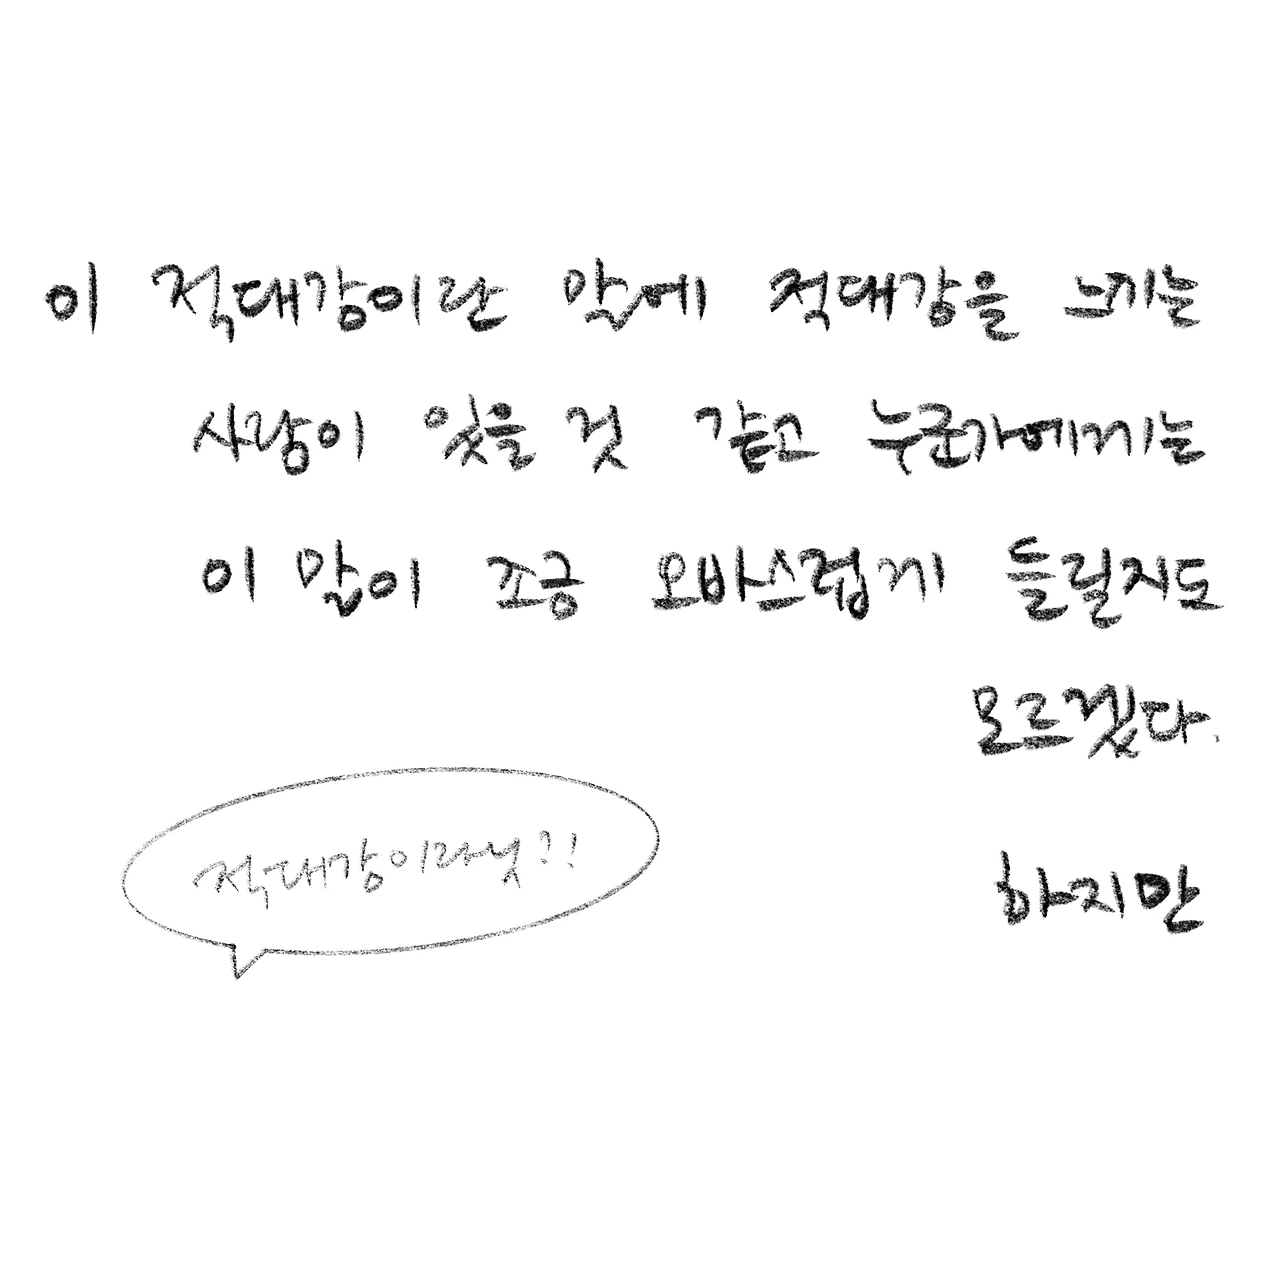 이 적대감이란 말에 적대감을 느끼는
사람이 있을 것 같고 누군가에게는
이 말이 조금 오바스럽게 들릴지도
모르겠다.
적대감이라닛?!
하지만